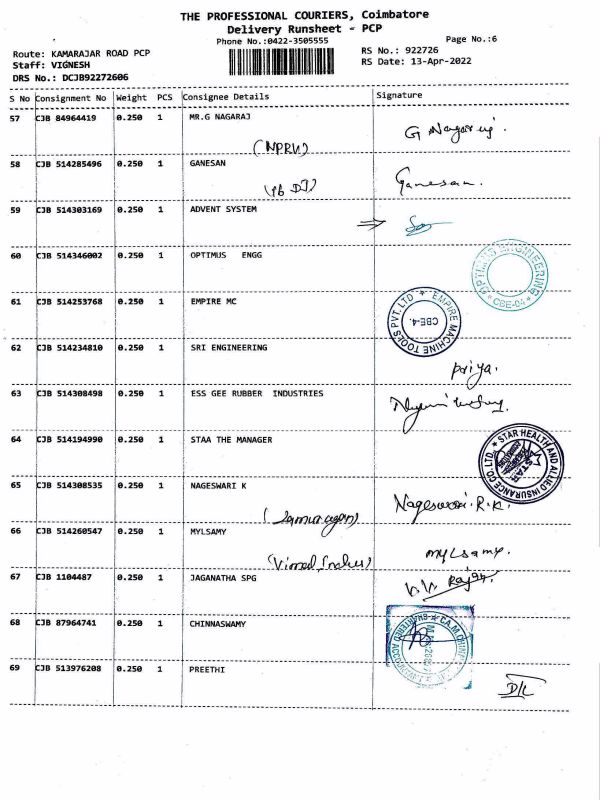 THE PROFESSIONAL COURIERS, Coimbatore
Delivery Runsheet - PCP
Phone No.:0422-3505555
Page No.:6
Route: KAMARAJAR ROAD PCP
RS No.: 922726
Staff: VIGNESH
RS Date: 13-Apr-2022
DRS No.: DCJB92272606
S No Consignment No Weight PCS Consignee Details Signature
57 CJB 84964419 0.250 1 MR.G NAGARAJ
G Nagaraj.
58 CJB 514285496 0.250 1 GANESAN
Ganesan.
59 CJB 514303169 0.250 1 ADVENT SYSTEM
60 CJB 514346002 0.250 1 OPTIMUS ENGG
OPTIMUS ENGINEERING
CBE-04
61 CJB 514253768 0.250 1 EMPIRE MC
EMPIRE MACHINE TOOLS PVT. LTD
CBE-4.
62 CJB 514234810 0.250 1 SRI ENGINEERING
priya.
63 CJB 514308498 0.250 1 ESS GEE RUBBER INDUSTRIES
64 CJB 514194990 0.250 1 STAA THE MANAGER
STAR HEALTH AND ALLIED INSURANCE CO. LTD.
STAR
65 CJB 514308535 0.250 1 NAGESWARI K
Nageswari. R.K.
66 CJB 514260547 0.250 1 MYLSAMY
myLsamy.
67 CJB 1104487 0.250 1 JAGANATHA SPG
68 CJB 87964741 0.250 1 CHINNASWAMY
69 CJB 513976208 0.250 1 PREETHI
D/L